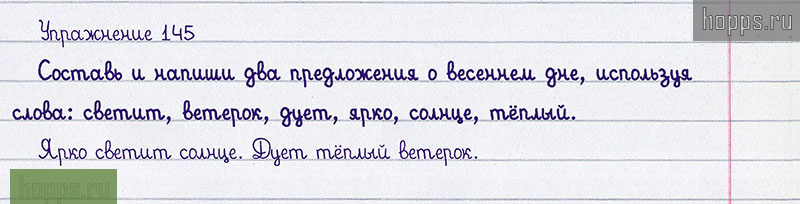 hopps.ru
Упражнение 145
Составь и напиши два предложения о весеннем дне, используя
слова: светит, ветерок, дует, ярко, солнце, тёплый.
Ярко светит солнце. Дует тёплый ветерок.
hopps.ru